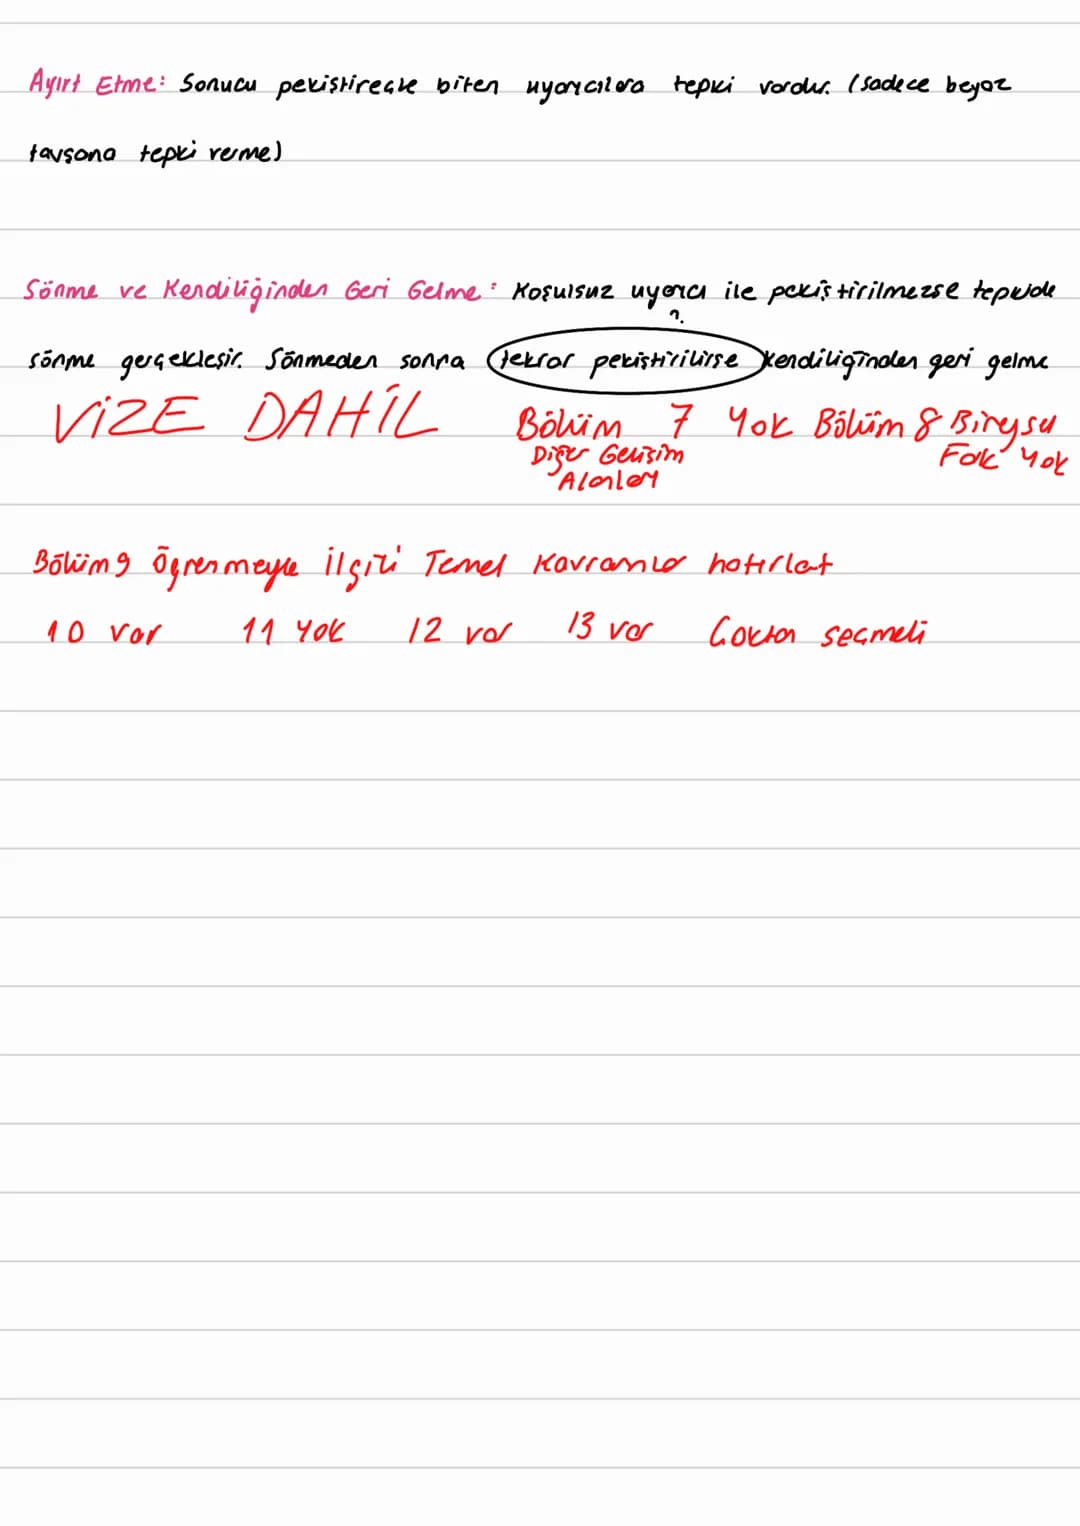 Ayırt Etme: Sonucu pekiştireçle biten uyarıcılara tepki vardır. (Sadece beyaz
tavşana tepki verme)
Sönme ve Kendiliğinden Geri Gelme: Koşulsuz uyarıcı ile pekiştirilmezse tepkide
?
sönme gerçekleşir. Sönmeden sonra tekrar pekiştirilirse kendiliğinden geri gelme
VİZE DAHİL Bölüm 7 Yok Bölüm 8 Bireysel
Diğer Gelişim Fark Yok
Alanları
Bölüm 9 Öğrenmeyle İlgili Temel Kavramlar hatırlat
10 var 11 Yok 12 var 13 var Çoktan seçmeli